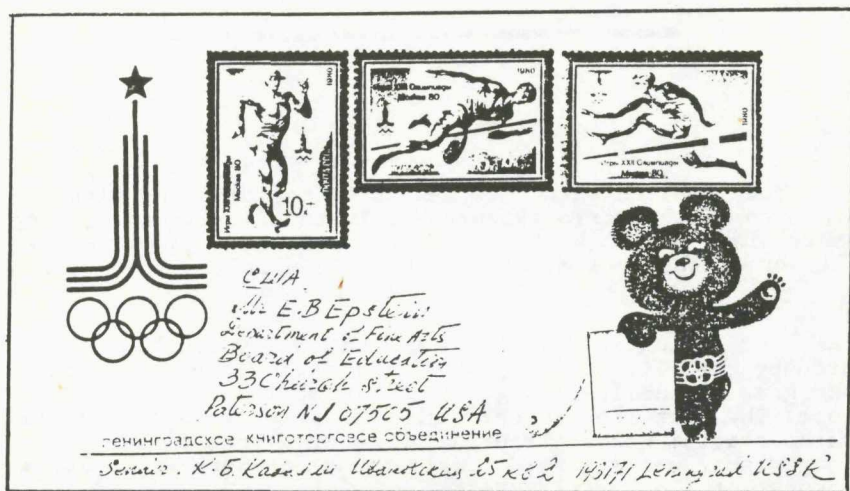 Игры XXII Олимпиады
Москва 80
1980
10 к
Игры XXII Олимпиады
Москва 80
1980
Игры XXII Олимпиады
Москва 80
1980
США
Mr E.B Epstein
Department of Fine Arts
Board of Education
33 Church street
Paterson NJ 07505 USA
ленинградское книготорговое объединение
К.Б. 25 кв 2 Leningrad USSR